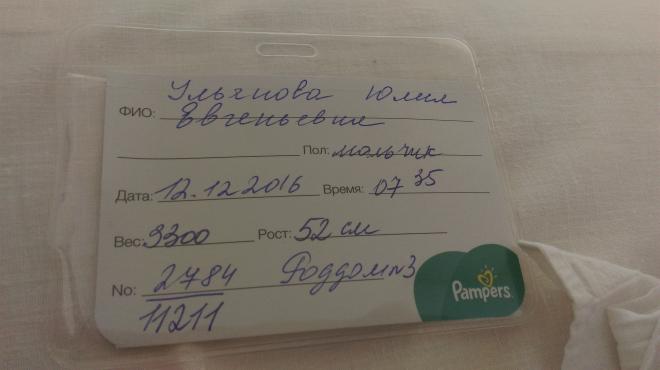 Ульянова Юлия
ФИО: Евгеньевна
Пол: мальчик
Дата: 12.12.2016 Время: 07 35
Вес: 3300 Рост: 52 см
No: 2784 Роддом №3
11211
Pampers